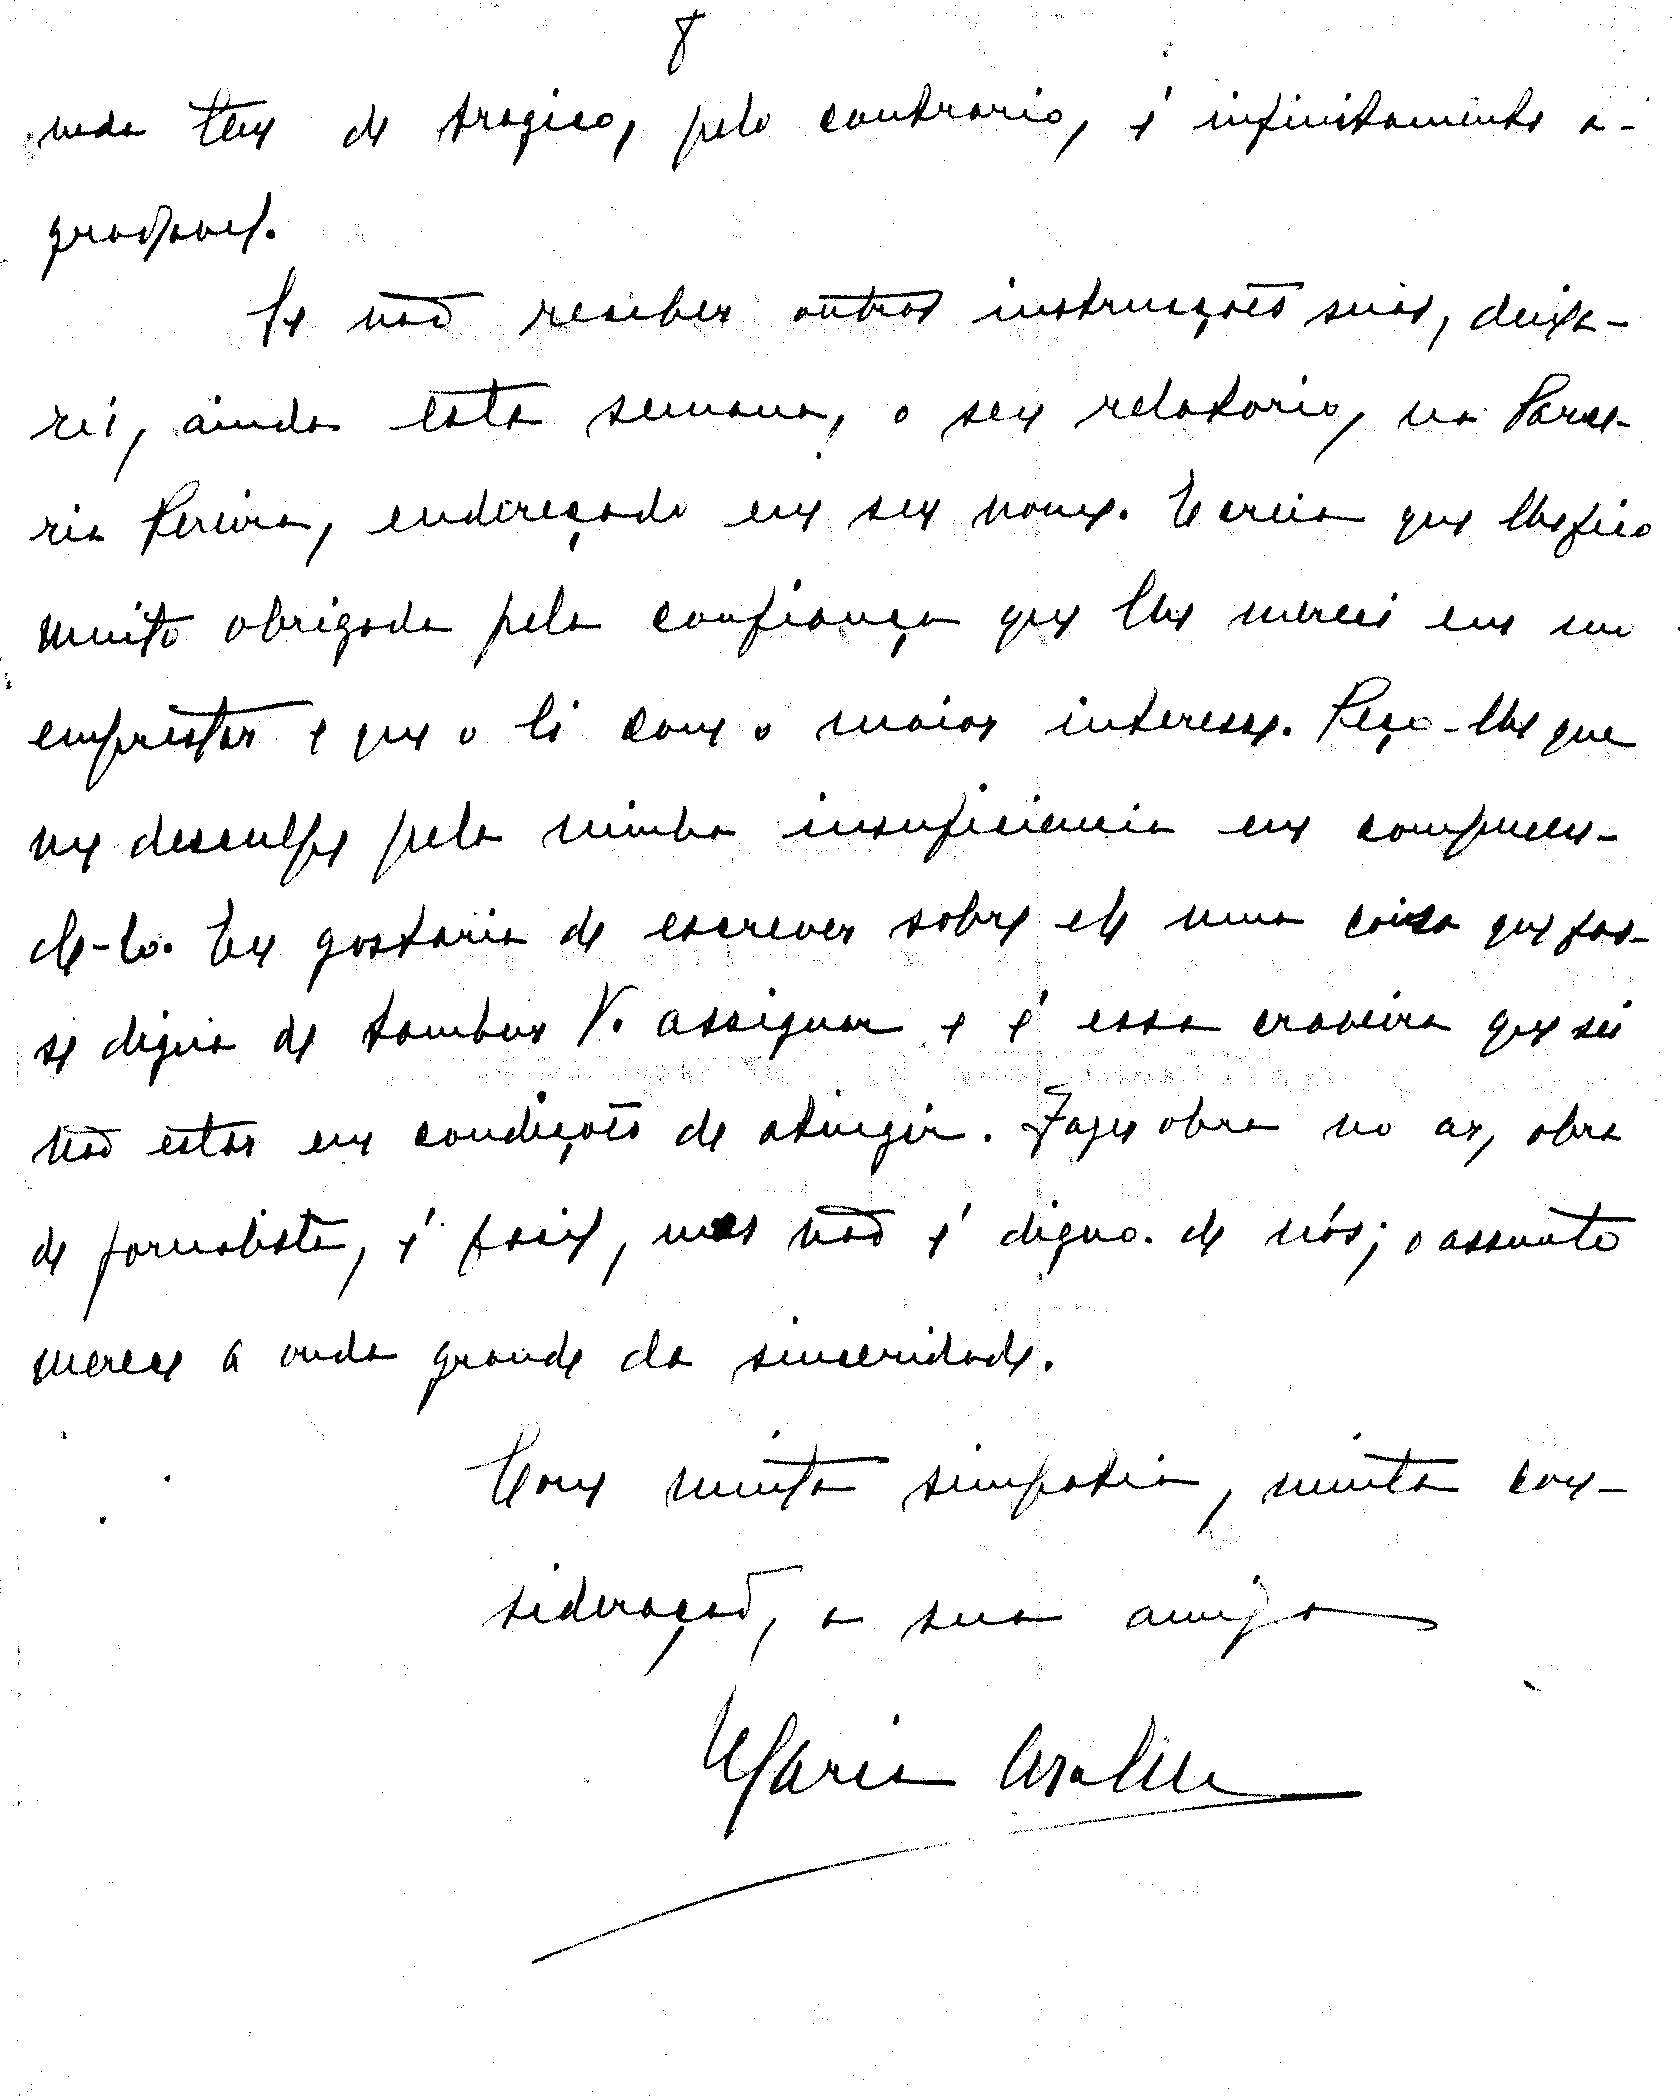 8
nada tem de tragico, pelo contrario, é infinitamente a-
gradavel.
Se não receber outras instrucções suas, deixa-
rei, ainda esta semana, o seu relatorio, na Parce-
ria Pereira, endereçado em seu nome. E creia que lhe fico
muito obrigada pela confiança que lhe mereci em mo
emprestar e que o li com o maior interesse. Peço-lhe que
me desculpe pela minha insuficiencia em compreen-
de-lo. Eu gostaria de escrever sobre ele uma coisa que fos-
se digna de tambem V. assignar e é essa craveira que sei
não estar em condições de atingir. Fazer obra no ar, obra
de jornalista, é facil, mas não é digno de nós; o assunto
merece a onda grande da sinceridade.
Com muita simpatia, muita con-
sideração, a sua amiga
Maria